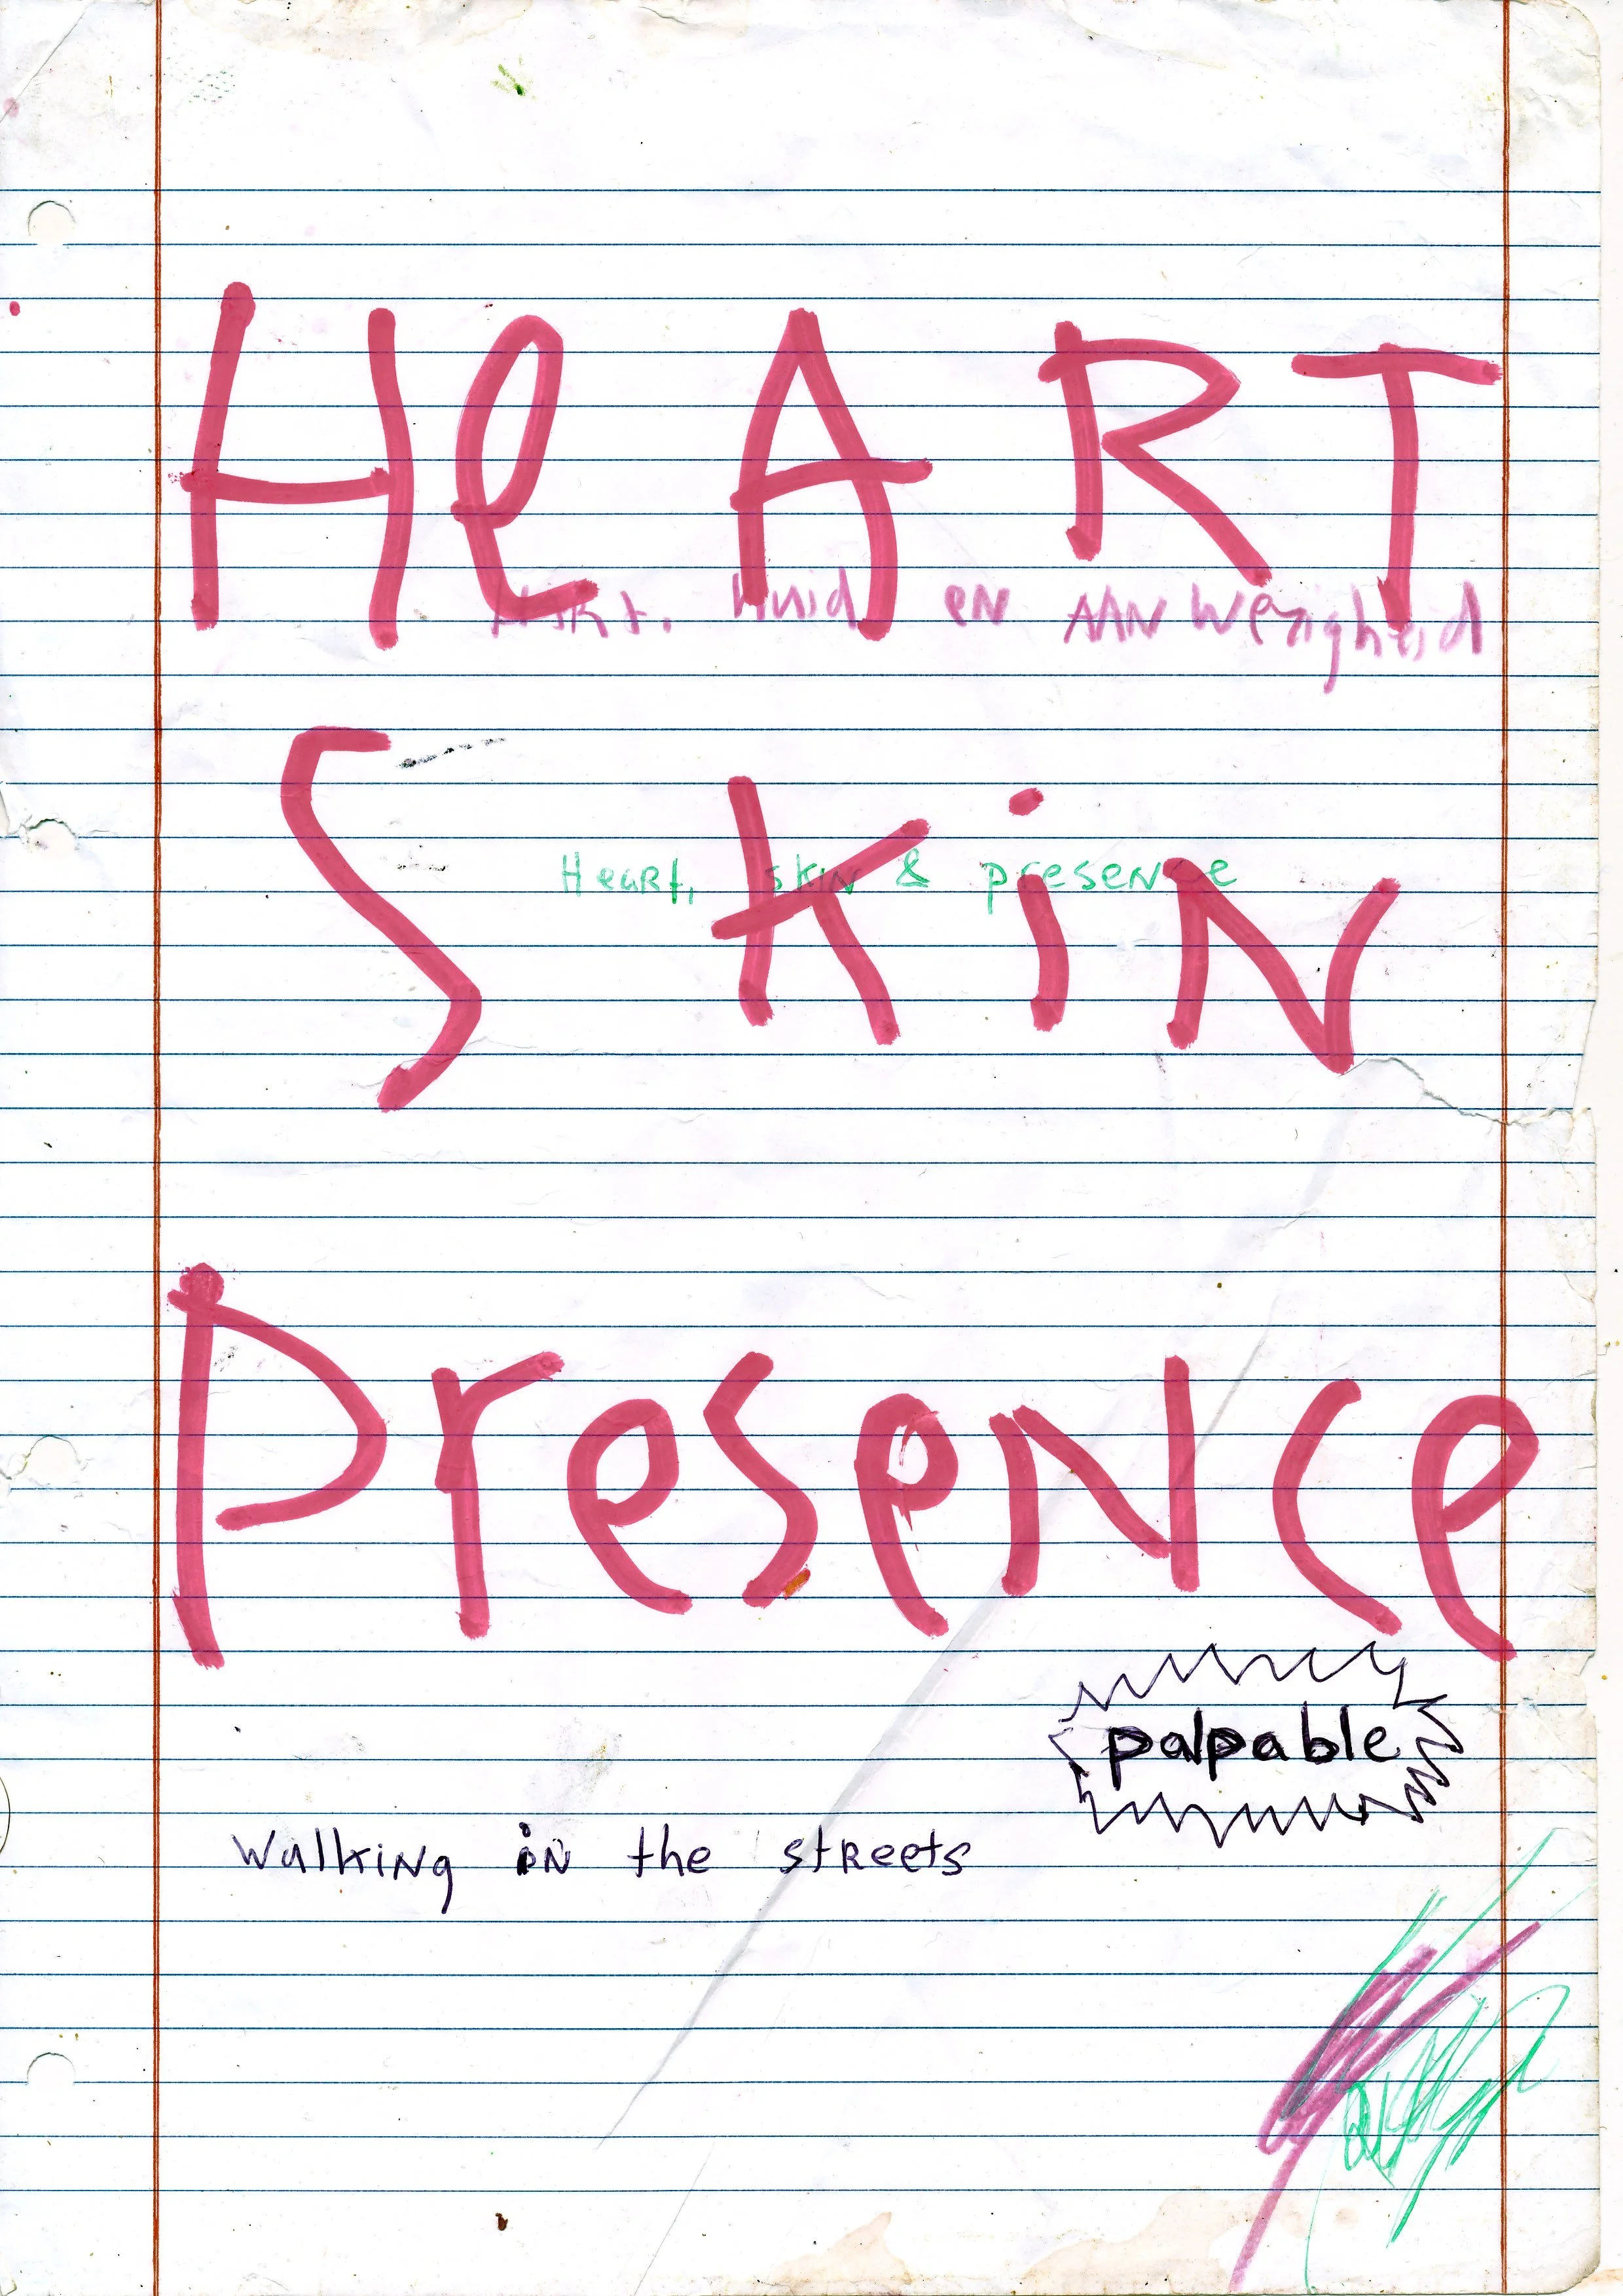 HeART
Hart, huid en AANwezigheid
SKiN
Heart, skin & presence
PreseNce
palpable
Walking in the streets